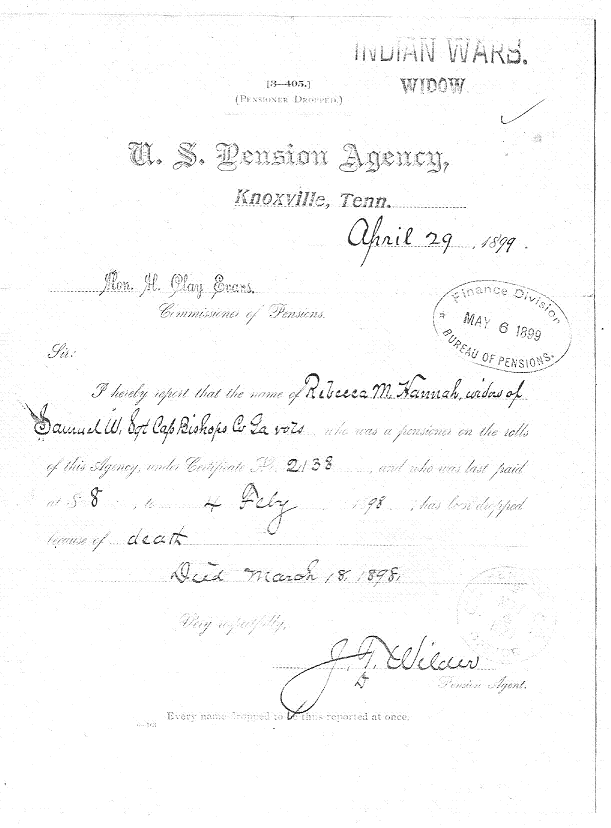 INDIAN WARS.
WIDOW
[3—405.]
(PENSIONER DROPPED.)
U. S. Pension Agency,
Knoxville, Tenn.
April 29, 1899.
Hon. H. Clay Evans.
Commissioner of Pensions.
Finance Division
MAY 6 1899
BUREAU OF PENSIONS.
Sir:
I hereby report that the name of Rebecca M. Hannah, widow of
Samuel W. Sgt Cap Bishops Co Ga vols who was a pensioner on the rolls
of this Agency, under Certificate No. 2138, and who was last paid
at $8, to 4 Feby, 1898, has been dropped
because of death
Died March 18, 1898.
Very respectfully,
Wilder
Pension Agent.
Every name dropped to be thus reported at once.